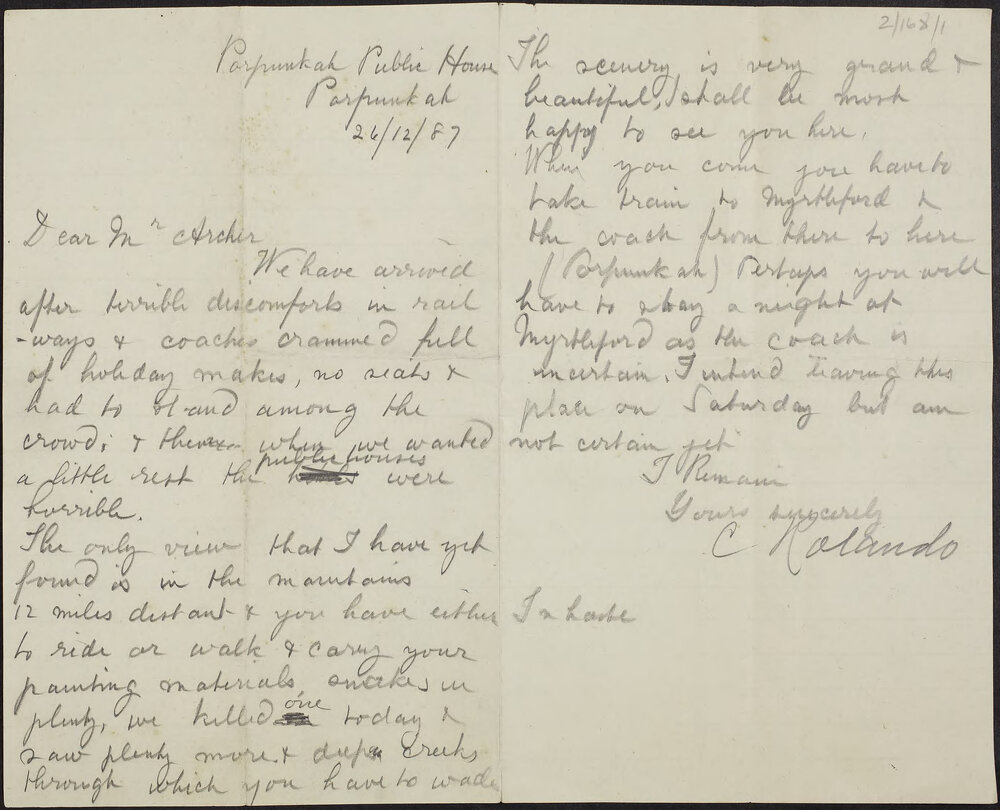 Porpunkah Public House
Porpunkah
26/12/87
Dear Mr Archer
We have arrived
after terrible discomforts in rail
-ways & coaches crammed full
of holiday makes, no seats &
had to stand among the
crowd; & then when we wanted
a little rest the public houses were
horrible.
The only view that I have yet
found is in the mountains
12 miles distant & you have either
to ride or walk & carry your
painting materials, snakes in
plenty, we killed one today &
saw plenty more. & deep creeks
through which you have to wade
2/168/1
The scenery is very grand &
beautiful, I shall be most
happy to see you here.
When you come you have to
take train to Myrtleford &
the coach from there to here
(Porpunkah) Perhaps you will
have to stay a night at
Myrtleford as the coach is
uncertain. I intend leaving this
place on Saturday but am
not certain yet
I Remain
Yours sincerely
C Rolando
In haste